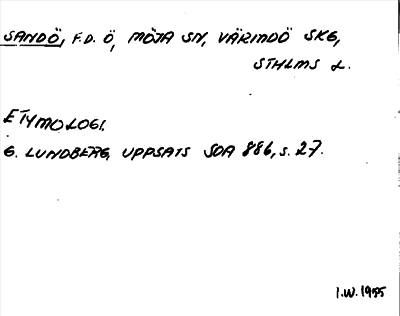 SANDÖ, F.D. Ö, MÖJA SN, VÄRMDÖ SKG,
STHLMS L.
ETYMOLOGI.
G. LUNDBERG, UPPSATS SOA 886, s. 27.
I.W. 1955